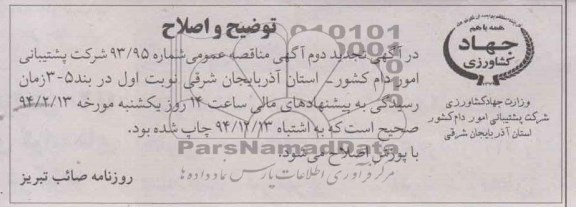 توضیح و اصلاح
در آگهی تجدید دوم آگهی مناقصه عمومی شماره ۹۳/۹۵ شرکت پشتیبانی
امور دام کشور ـ استان آذربایجان شرقی نوبت اول در بند ۵-۳ زمان
رسیدگی به پیشنهادهای مالی ساعت ۱۴ روز یکشنبه مورخه ۹۴/۲/۱۳
صحیح است که به اشتباه ۹۴/۱۲/۱۳ چاپ شده بود.
با پوزش اصلاح می شود.
روزنامه صائب تبریز
همه با هم
جهاد
کشاورزی
وزارت جهاد کشاورزی
شرکت پشتیبانی امور دام کشور
استان آذربایجان شرقی
ParsNamadData
مرکز فرآوری اطلاعات پارس نماد داده ها